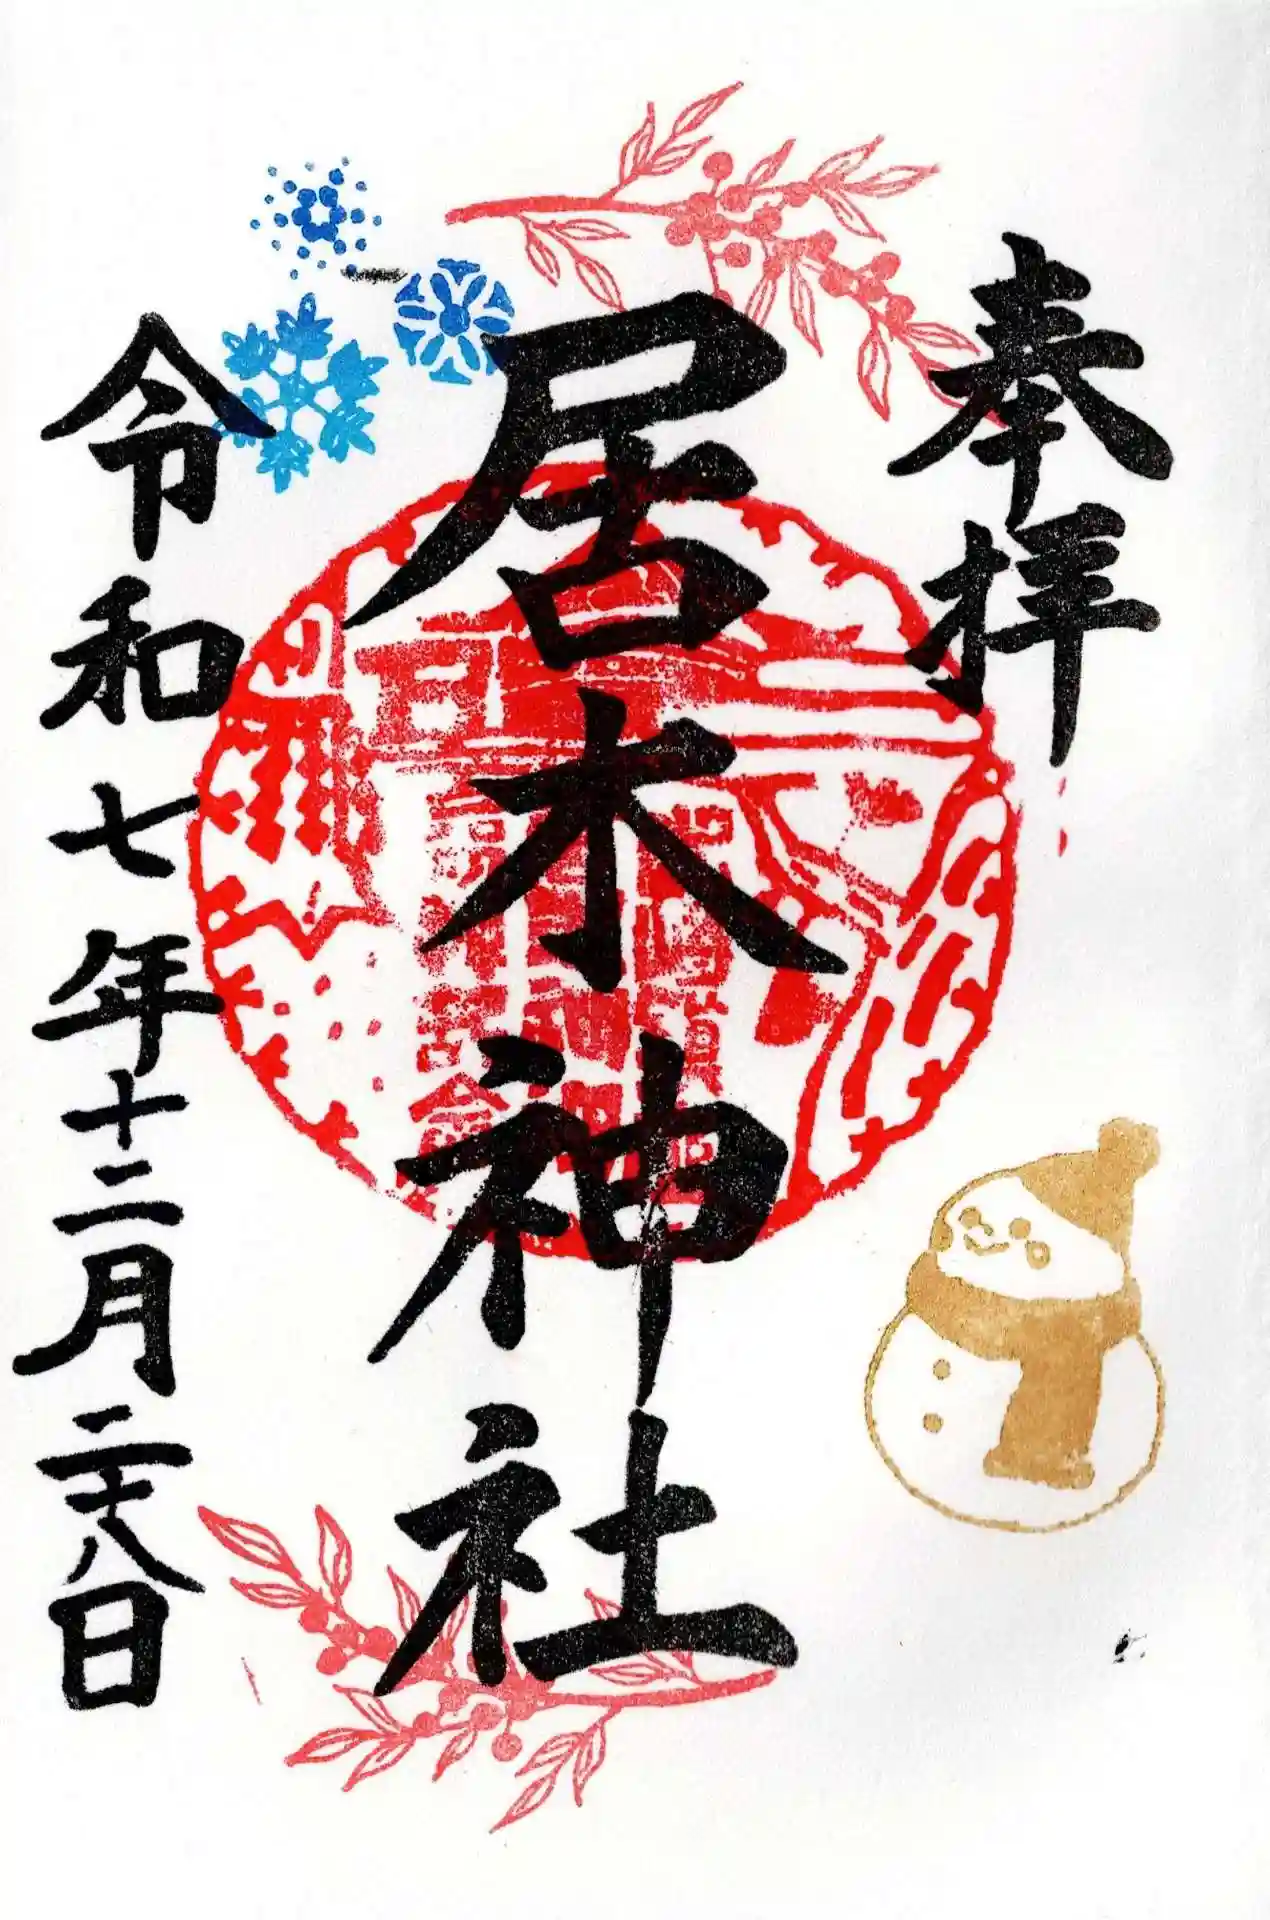 奉拝
居木神社
令和七年十二月二十八日